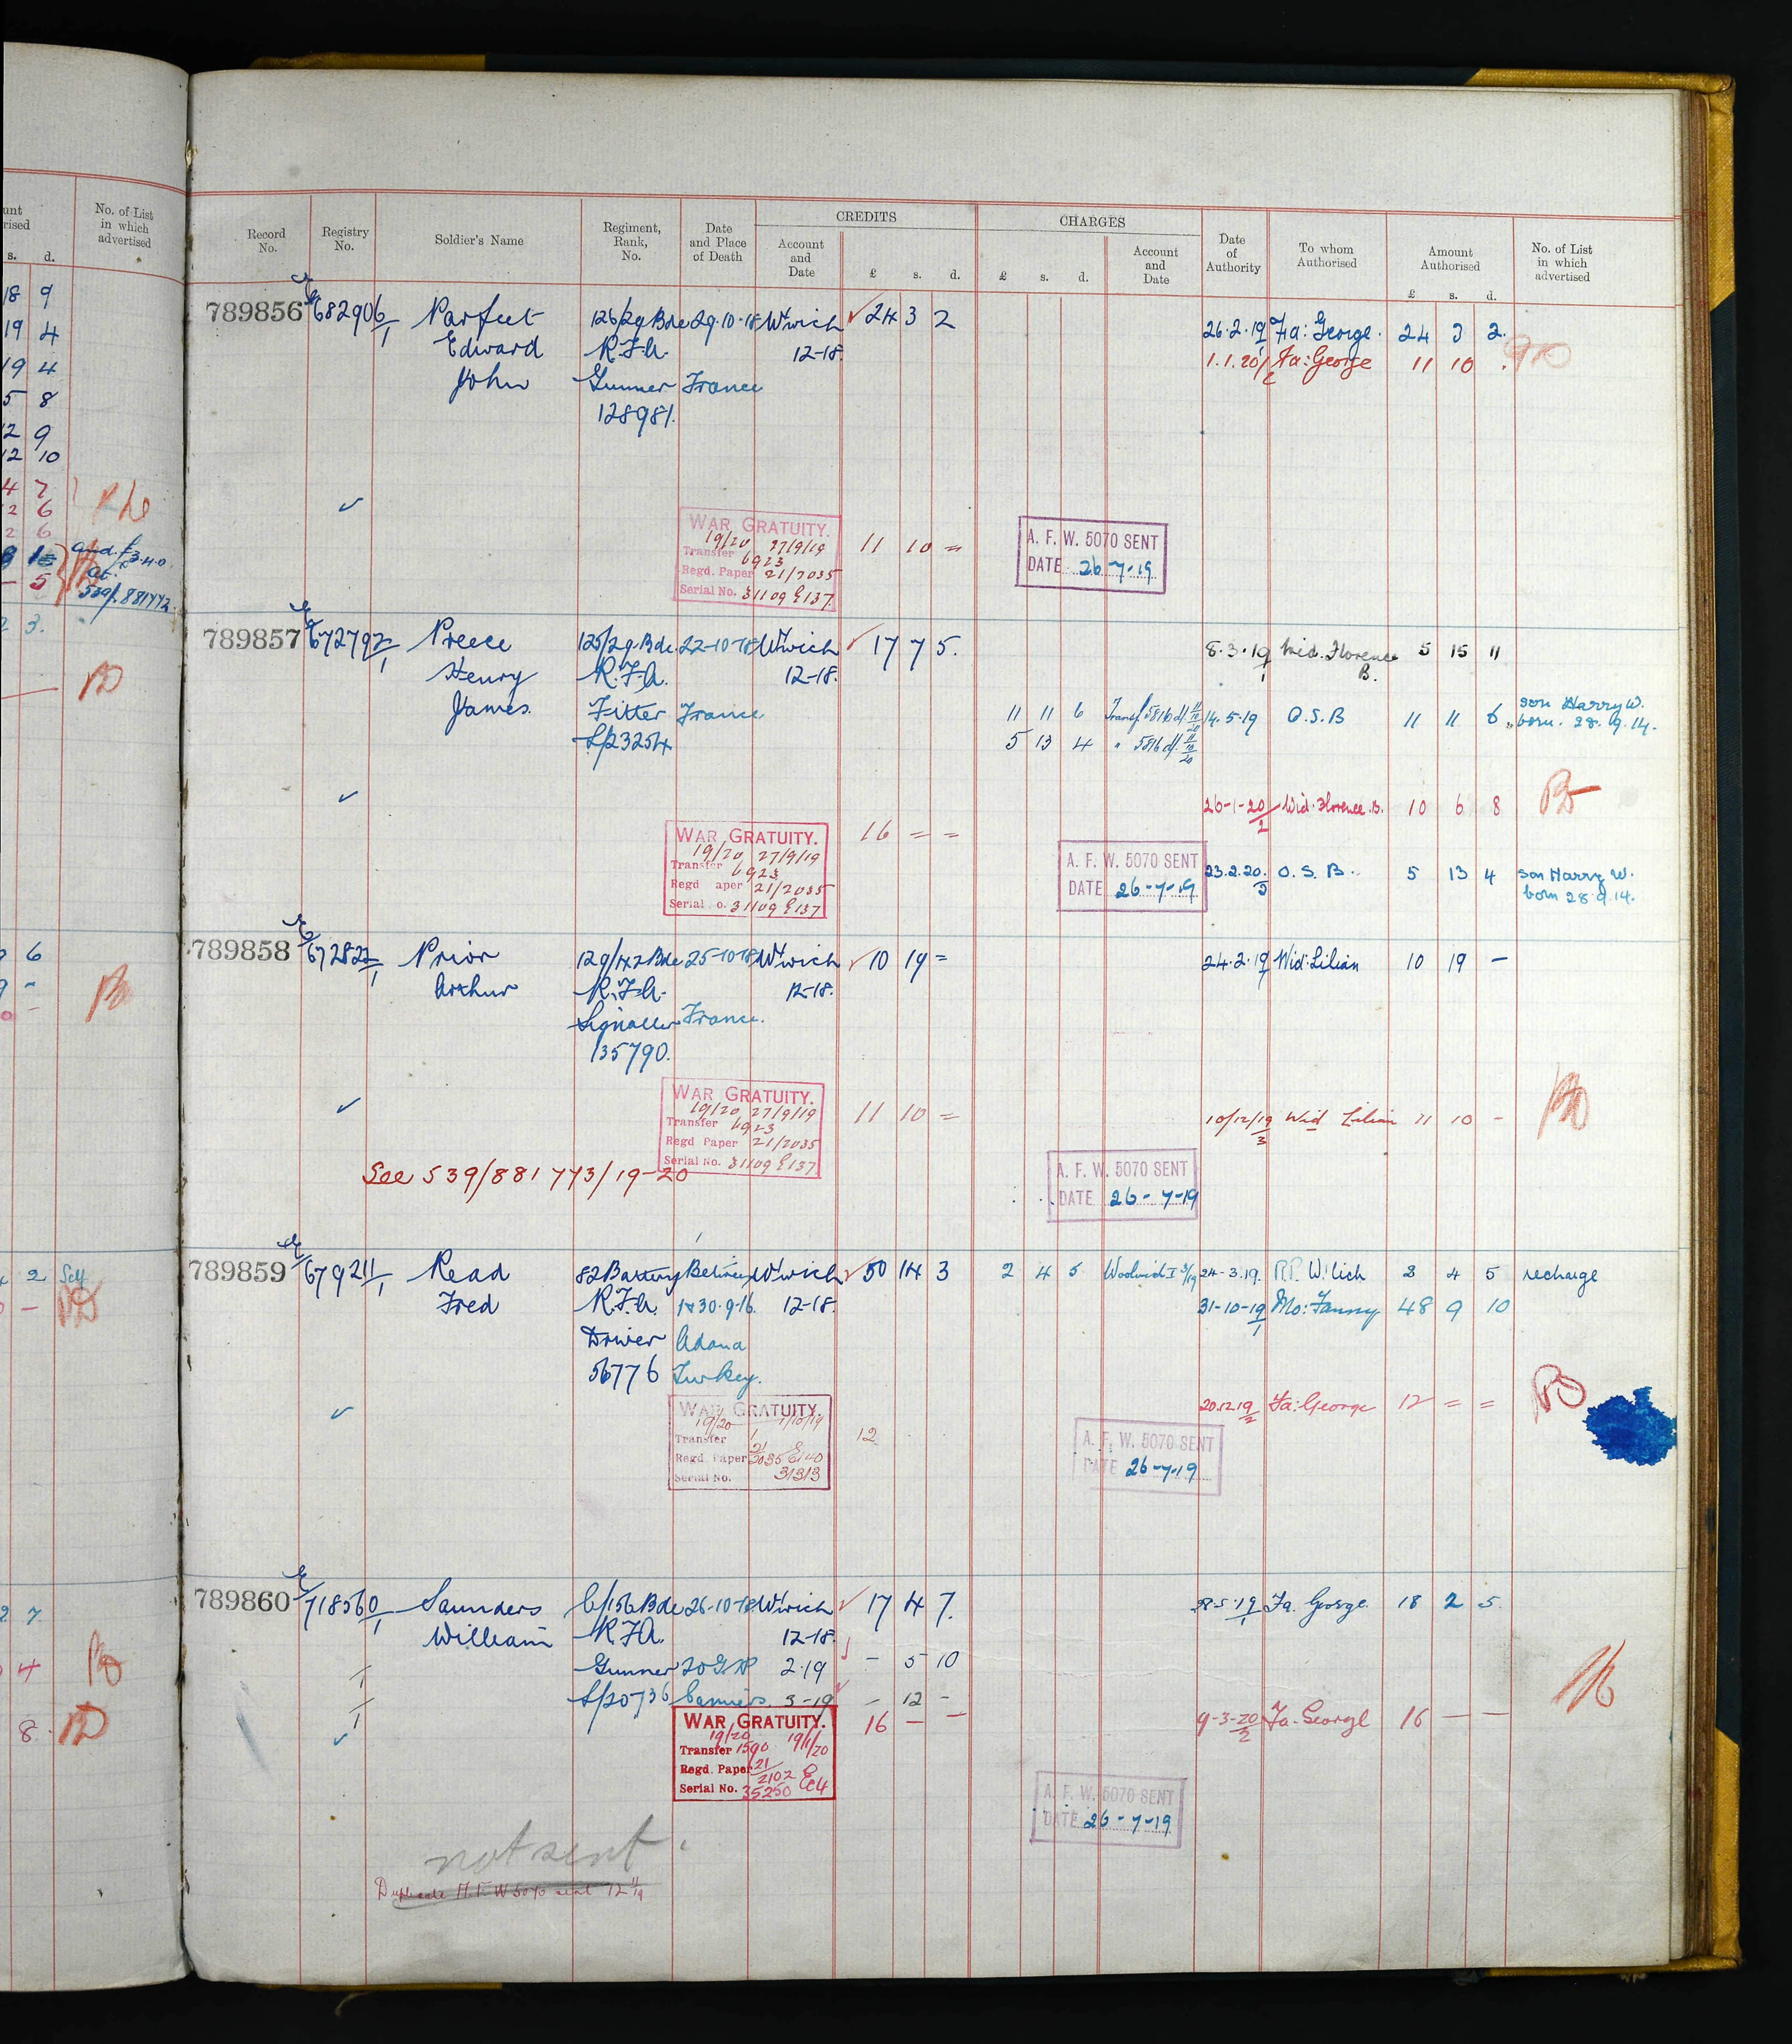 unt
rised
s. d.
No. of List
in which
advertised
18 9
19 4
19 4
5 8
12 9
12 10
4 7
2 6
2 6
- 5
539/881772
2 3.
6
2 Self
2 7
4
8
Record
No.
Registry
No.
Soldier's Name
Regiment,
Rank,
No.
Date
and Place
of Death
CREDITS
Account
and
Date
£ s. d.
CHARGES
£ s. d.
Account
and
Date
Date
of
Authority
To whom
Authorised
Amount
Authorised
£ s. d.
No. of List
in which
advertised
789856 E/682906/1 Parfeet 126/29 Bde 29.10.18 W'wich 24 3 2 26.2.19/1 Fa: George. 24 3 2.
Edward R.F.A. 12-18. 1.1.20/2 Fa: George 11 10 .
John Gunner France
128981.
WAR GRATUITY.
19/20 27/9/19
Transfer 6923
Regd. Paper 21/2035
Serial No. 31109 E137
11 10 =
A. F. W. 5070 SENT
DATE 26-7-19
789857 E/672797/1 Preece 125/29.Bde. 22-10-18 W'wich 17 7 5. 8.3.19/1 Wid. Florence B. 5 15 11
Henry R.F.A. 12-18.
James. Fitter France 11 11 6 Transf 5816 14.5.19 O.S.B 11 11 6 son Harry W.
born. 28.9.14.
L/23254 5 13 4 " 5816
26-1-20/2 Wid. Florence.B. 10 6 8
WAR GRATUITY.
19/20 27/9/19
Transfer 6923
Regd aper 21/2035
Serial o. 31109 E137
16 = =
A. F. W. 5070 SENT
DATE 26-7-19
23.2.20./3 O.S.B. 5 13 4 son Harry W.
born 28.9.14.
789858 E/672822/1 Prior 129/42 Bde 25-10-18 W'wich 10 19 = 24.2.19/1 Wid: Lilian 10 19 -
Arthur R.F.A. 12-18.
Signaller France.
135790.
WAR GRATUITY.
19/20 27/9/19
Transfer 6923
Regd Paper 21/2035
Serial No. 31109 E137
11 10 =
10/12/19/3 Wid Lilian 11 10 -
See 539/881773/19-20
A. F. W. 5070 SENT
DATE 26-7-19
789859 E/679211/1 Read 82 Battery Between W'wich 50 14 3 2 4 5 24-3.19. R.P. W'lich 2 4 5 recharge
Fred R.F.A. 1 & 30.9.16. 12-18. 31-10-19/1 Mo: Fanny 48 9 10
Driver Adana
56776 Turkey.
20.12.19/2 Fa: George 12 = =
WAR GRATUITY.
19/20 1/10/19
Transfer 1
Regd. Paper 21/2035 E140
Serial No. 31313
12
A. F. W. 5070 SENT
DATE 26-7-19
789860 E/718560/1 Saunders C/156 Bde 26-10-18 W'wich 17 4 7. Fa. George. 18 2 5.
William R.F.A. 12-18.
Gunner 20 G.H. 2.19 - 5 10
L/20736 Camiers. 3-19 - 12 -
WAR GRATUITY.
19/20 19/1/20
Transfer 1590
Regd. Paper 21/2102
Serial No. 35250
16 - -
9-3-20/2 Fa. George 16 - -
A. F. W. 5070 SENT
DATE 26-7-19
not sent.
Duplicate A.F.W 5070 sent